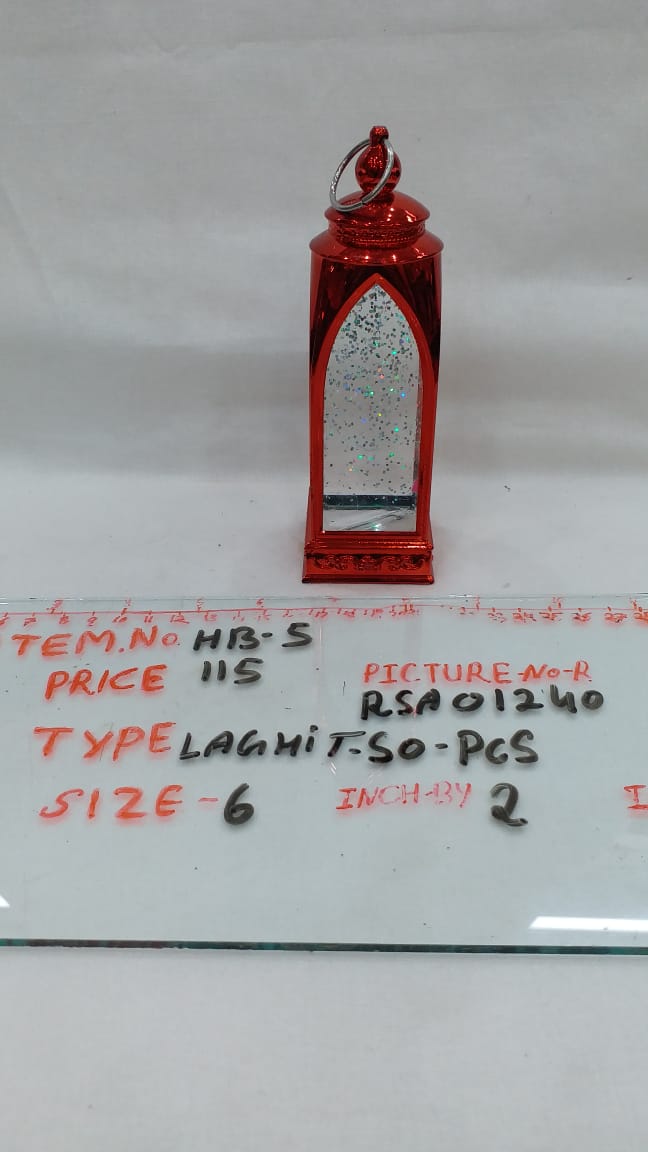 ITEM.No. HB-5
PRICE 115
PICTURE-No-R
RSA01240
TYPE LAGHiT-SO-PCS
SIZE-6 INCH-BY 2 I